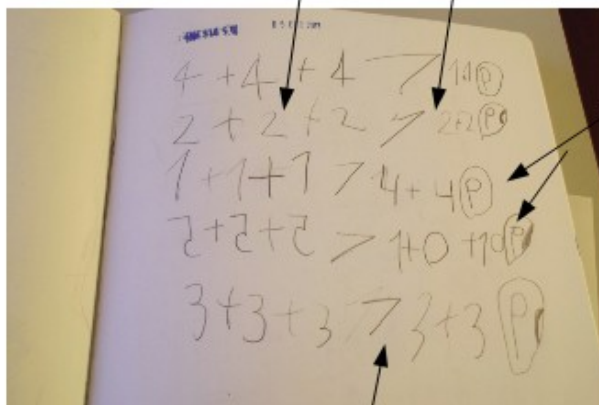 4 + 4 + 4 > 14 P
2 + 2 + 2 > 2+2 P
1 + 1 + 1 > 4 + 4 P
2 + 2 + 2 > 1+0 +10 P
3 + 3 + 3 > 3 + 3 P